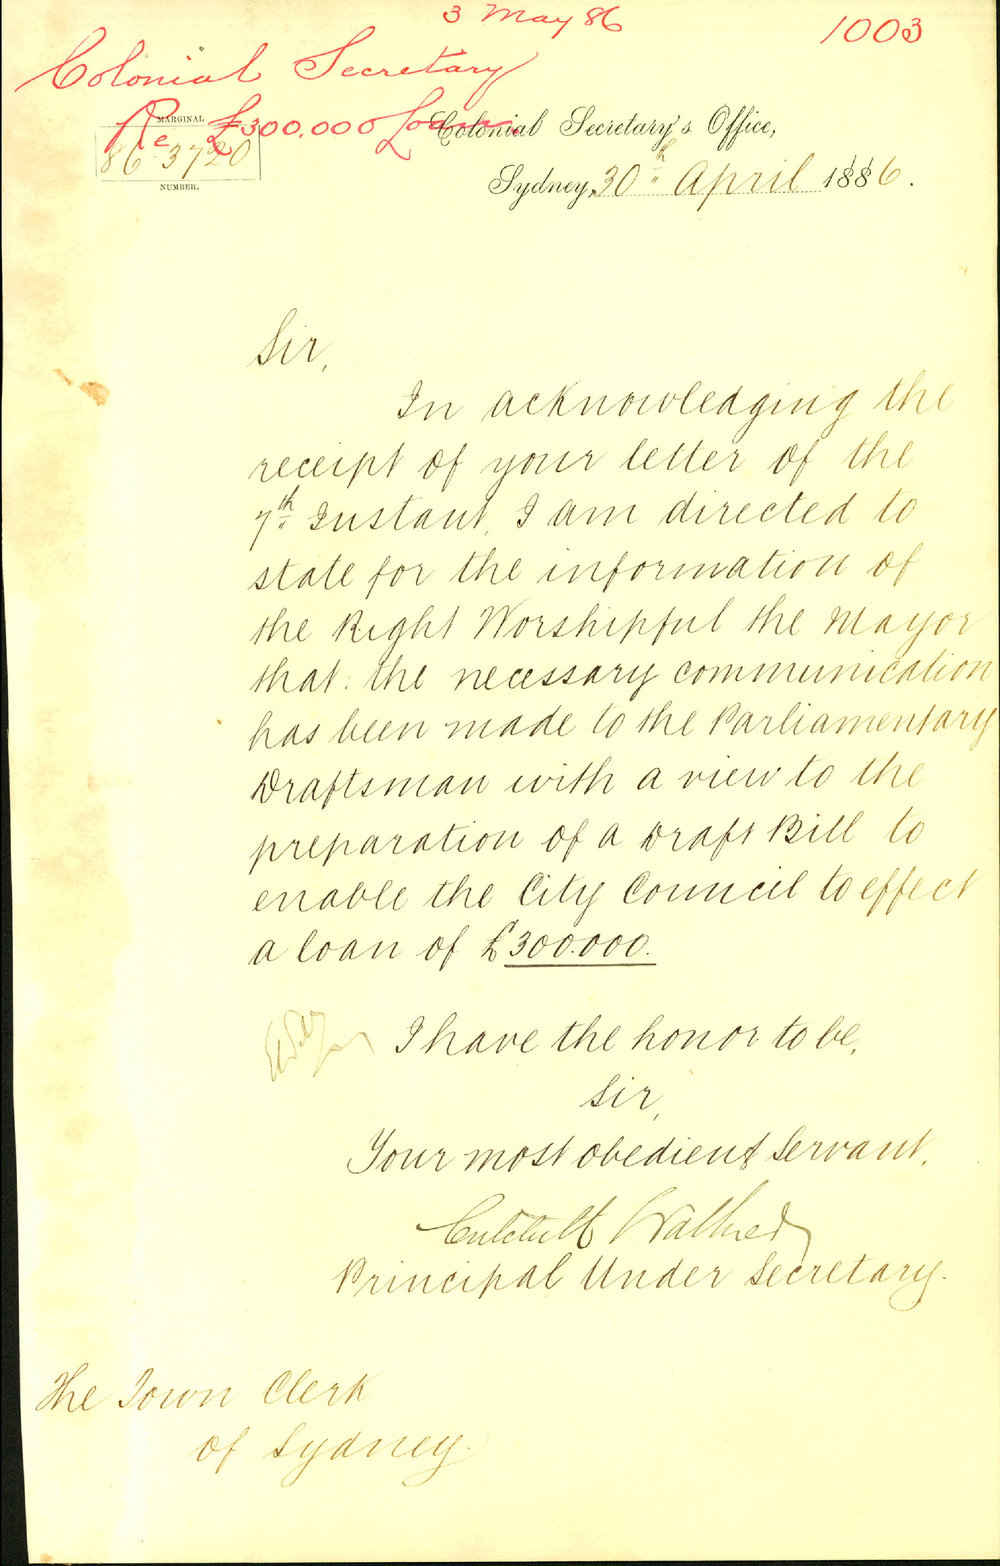 3 May 86
1003
Colonial Secretary
Re £300,000 Loan
MARGINAL
86 3720
NUMBER.
Colonial Secretary's Office,
Sydney, 30th April 1886.
Sir,
In acknowledging the
receipt of your letter of the
7th Instant, I am directed to
state for the information of
the Right Worshipful the Mayor
that the necessary communication
has been made to the Parliamentary
Draftsman with a view to the
preparation of a Draft Bill to
enable the City Council to effect
a loan of £300.000.
I have the honor to be,
Sir,
Your most obedient Servant,
Critchett Walker
Principal Under Secretary.
The Town Clerk
of Sydney.